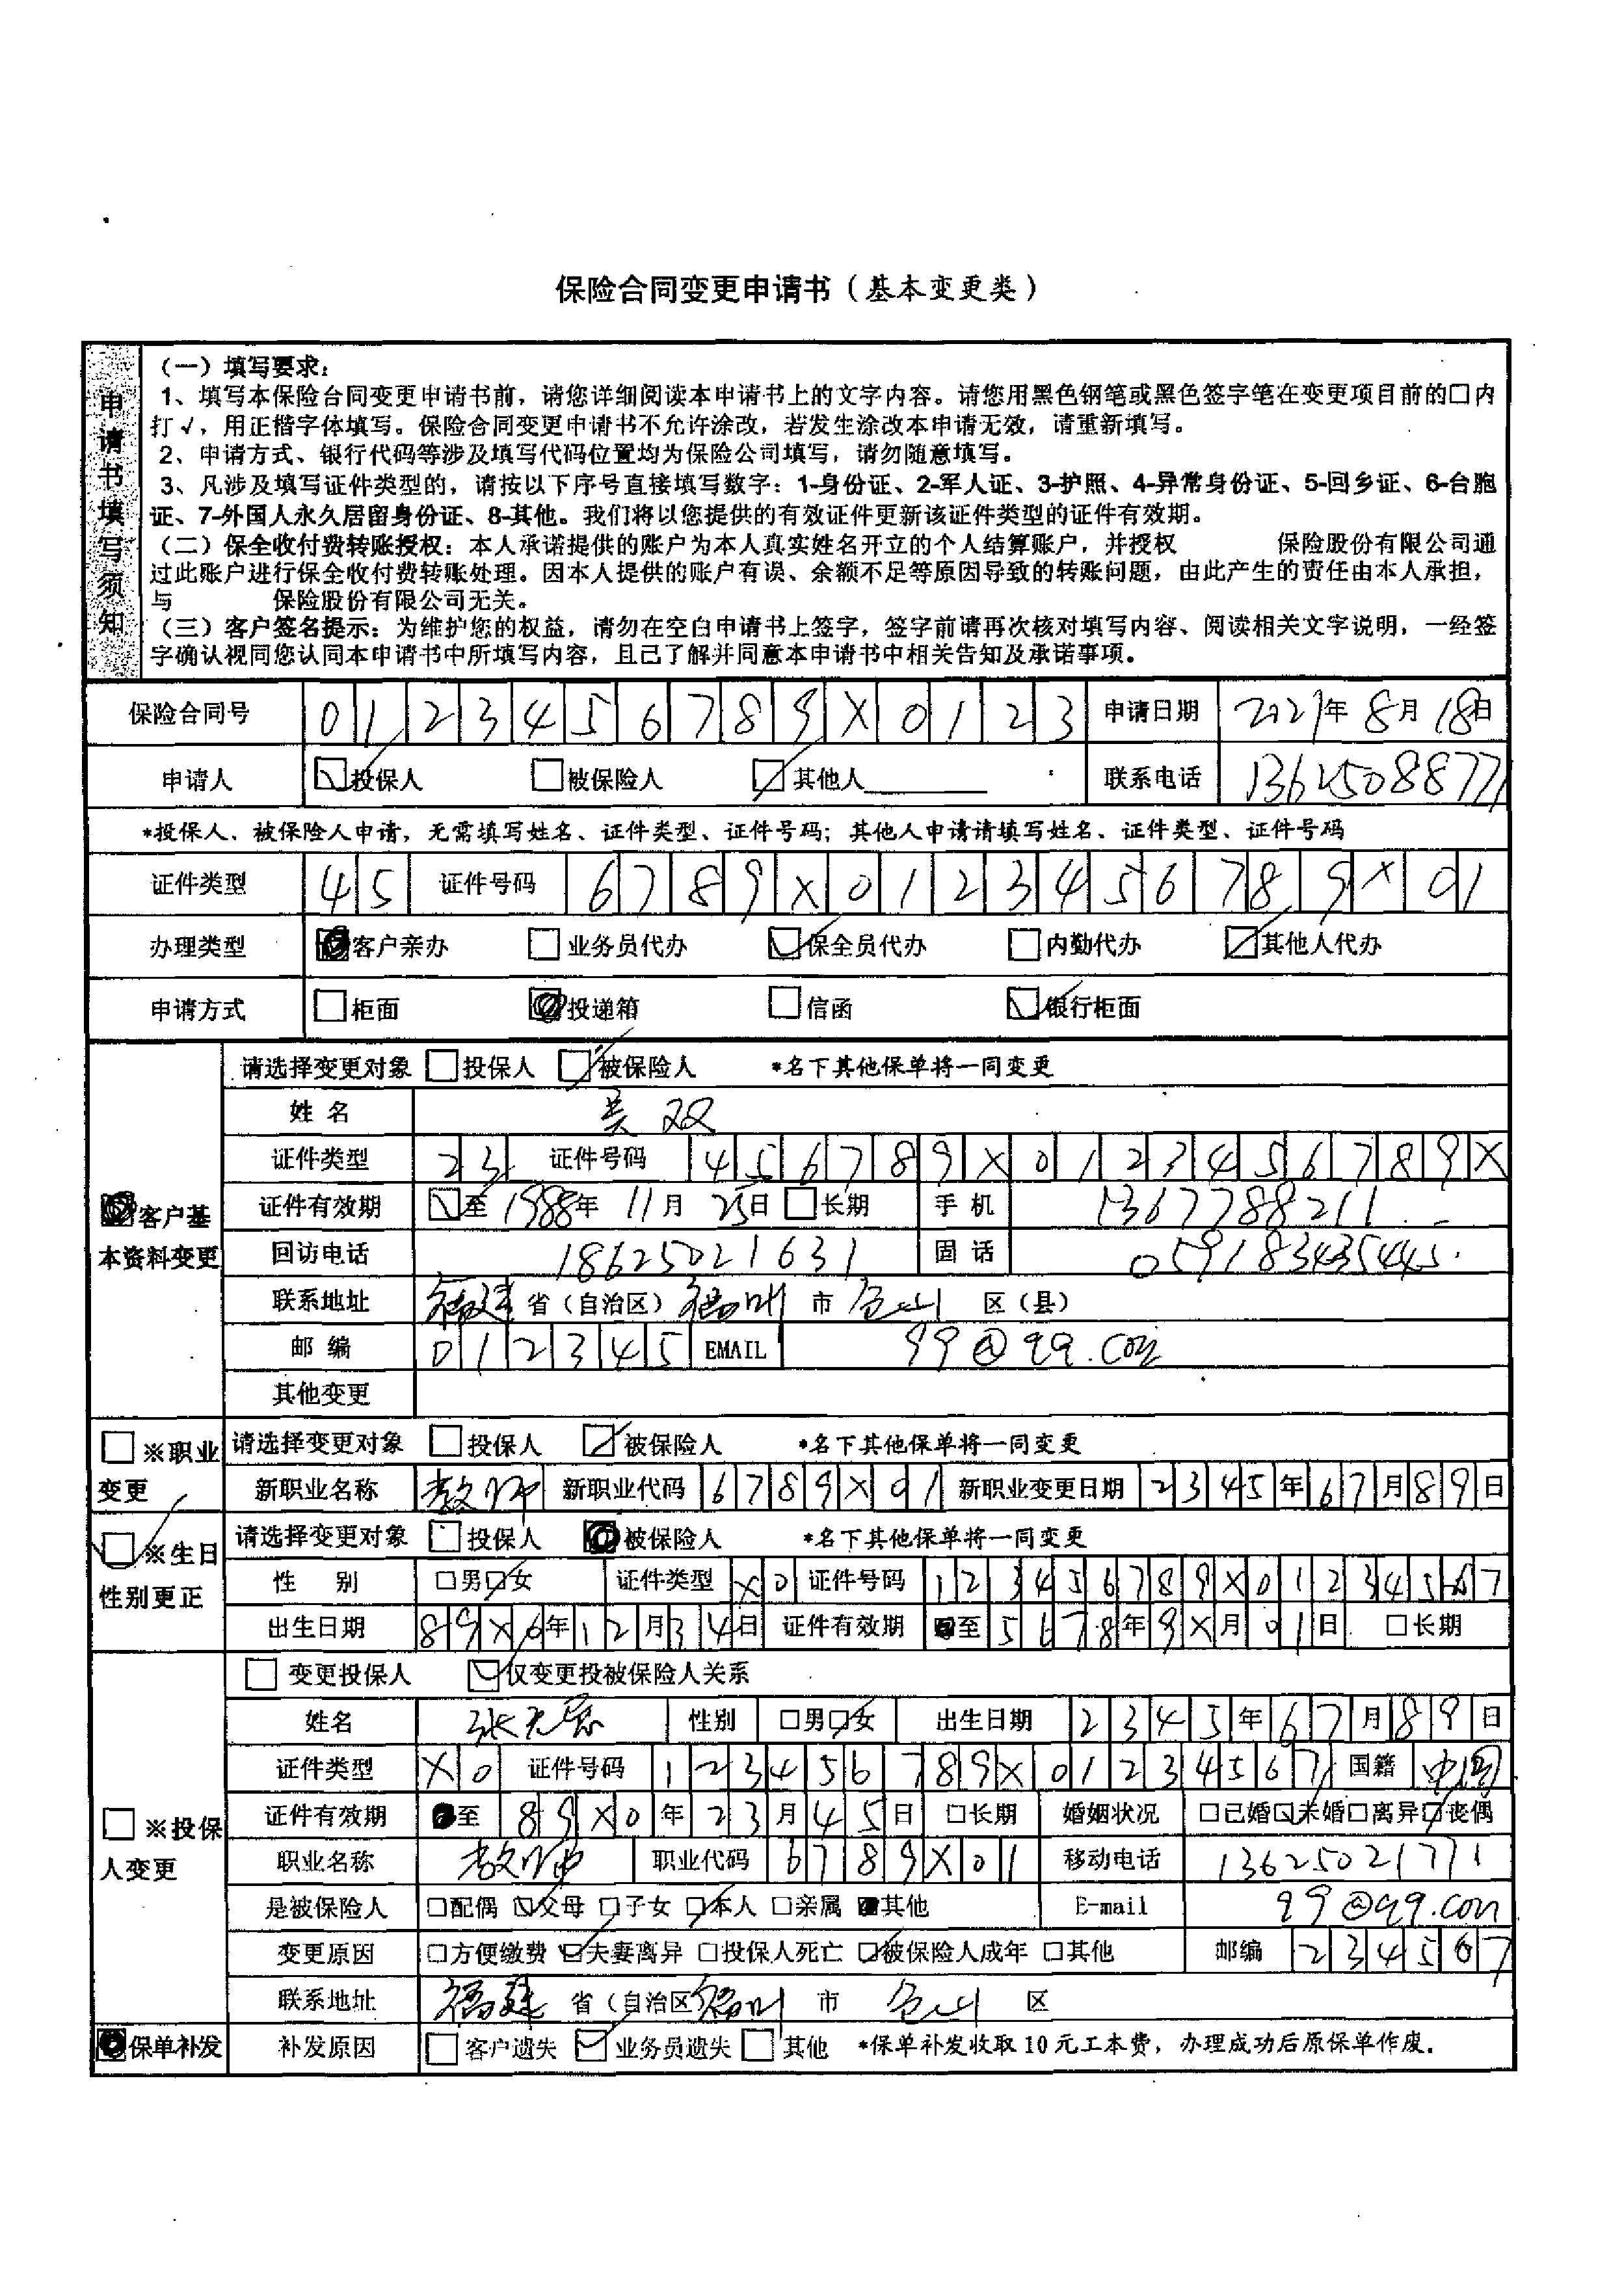 保险合同变更申请书（基本变更类）
申请书填写须知
（一）填写要求：
1、填写本保险合同变更申请书前，请您详细阅读本申请书上的文字内容。请您用黑色钢笔或黑色签字笔在变更项目前的□内
打√，用正楷字体填写。保险合同变更申请书不允许涂改，若发生涂改本申请无效，请重新填写。
2、申请方式、银行代码等涉及填写代码位置均为保险公司填写，请勿随意填写。
3、凡涉及填写证件类型的，请按以下序号直接填写数字：1-身份证、2-军人证、3-护照、4-异常身份证、5-回乡证、6-台胞
证、7-外国人永久居留身份证、8-其他。我们将以您提供的有效证件更新该证件类型的证件有效期。
（二）保全收付费转账授权：本人承诺提供的账户为本人真实姓名开立的个人结算账户，并授权 保险股份有限公司通
过此账户进行保全收付费转账处理。因本人提供的账户有误、余额不足等原因导致的转账问题，由此产生的责任由本人承担，
与 保险股份有限公司无关。
（三）客户签名提示：为维护您的权益，请勿在空白申请书上签字，签字前请再次核对填写内容、阅读相关文字说明，一经签
字确认视同您认同本申请书中所填写内容，且已了解并同意本申请书中相关告知及承诺事项。
保险合同号 0123456789X0123 申请日期 2021年8月18日
申请人 ☑投保人 □被保险人 ☑其他人 联系电话 13625088771
*投保人、被保险人申请，无需填写姓名、证件类型、证件号码；其他人申请请填写姓名、证件类型、证件号码
证件类型 45 证件号码 6789X0123456789X01
办理类型 ■客户亲办 □业务员代办 ☑保全员代办 □内勤代办 ☑其他人代办
申请方式 □柜面 ■投递箱 □信函 ☑银行柜面
■客户基本资料变更
请选择变更对象 □投保人 ☑被保险人 *名下其他保单将一同变更
姓名 吴双
证件类型 23 证件号码 456789X0123456789X
证件有效期 ☑至1988年11月25日 □长期 手机 1367788211
回访电话 18625021631 固话 059183435445
联系地址 福建 省（自治区） 福州 市 仓山 区（县）
邮编 012345 EMAIL 99@qq.com
其他变更
□※职业变更
请选择变更对象 □投保人 ☑被保险人 *名下其他保单将一同变更
新职业名称 教师 新职业代码 6789X01 新职业变更日期 2345年67月89日
☑※生日性别更正
请选择变更对象 □投保人 ■被保险人 *名下其他保单将一同变更
性别 □男☑女 证件类型 X0 证件号码 123456789X01234567
出生日期 89X6年12月34日 证件有效期 ■至5678年9X月01日 □长期
□※投保人变更
□变更投保人 ☑仅变更投被保险人关系
姓名 张无忌 性别 □男☑女 出生日期 2345年67月89日
证件类型 X0 证件号码 123456789X01234567 国籍 中国
证件有效期 ■至89X0年23月45日 □长期 婚姻状况 □已婚☑未婚□离异☑丧偶
职业名称 教师 职业代码 6789X01 移动电话 13625021771
是被保险人 □配偶 ☑父母 □子女 ☑本人 □亲属 ■其他 E-mail 99@qq.com
变更原因 □方便缴费 ☑夫妻离异 □投保人死亡 ☑被保险人成年 □其他 邮编 234567
联系地址 福建 省（自治区 福州 市 仓山 区
■保单补发 补发原因 □客户遗失 ☑业务员遗失 □其他 *保单补发收取10元工本费，办理成功后原保单作废。